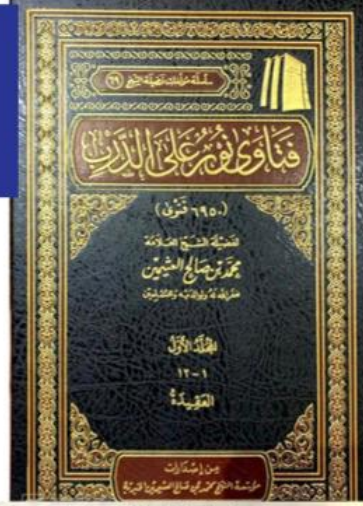 سلسلة مؤلفات فضيلة الشيخ (٦٩)
فتاوى نور على الدرب
(٦٩٥٠ فتوى)
لفضيلة الشيخ العلامة
محمد بن صالح العثيمين
غفر الله له ولوالديه وللمسلمين
المجلد الأول
١-١٢
العقيدة
من إصدارات
مؤسسة الشيخ محمد بن صالح العثيمين الخيرية